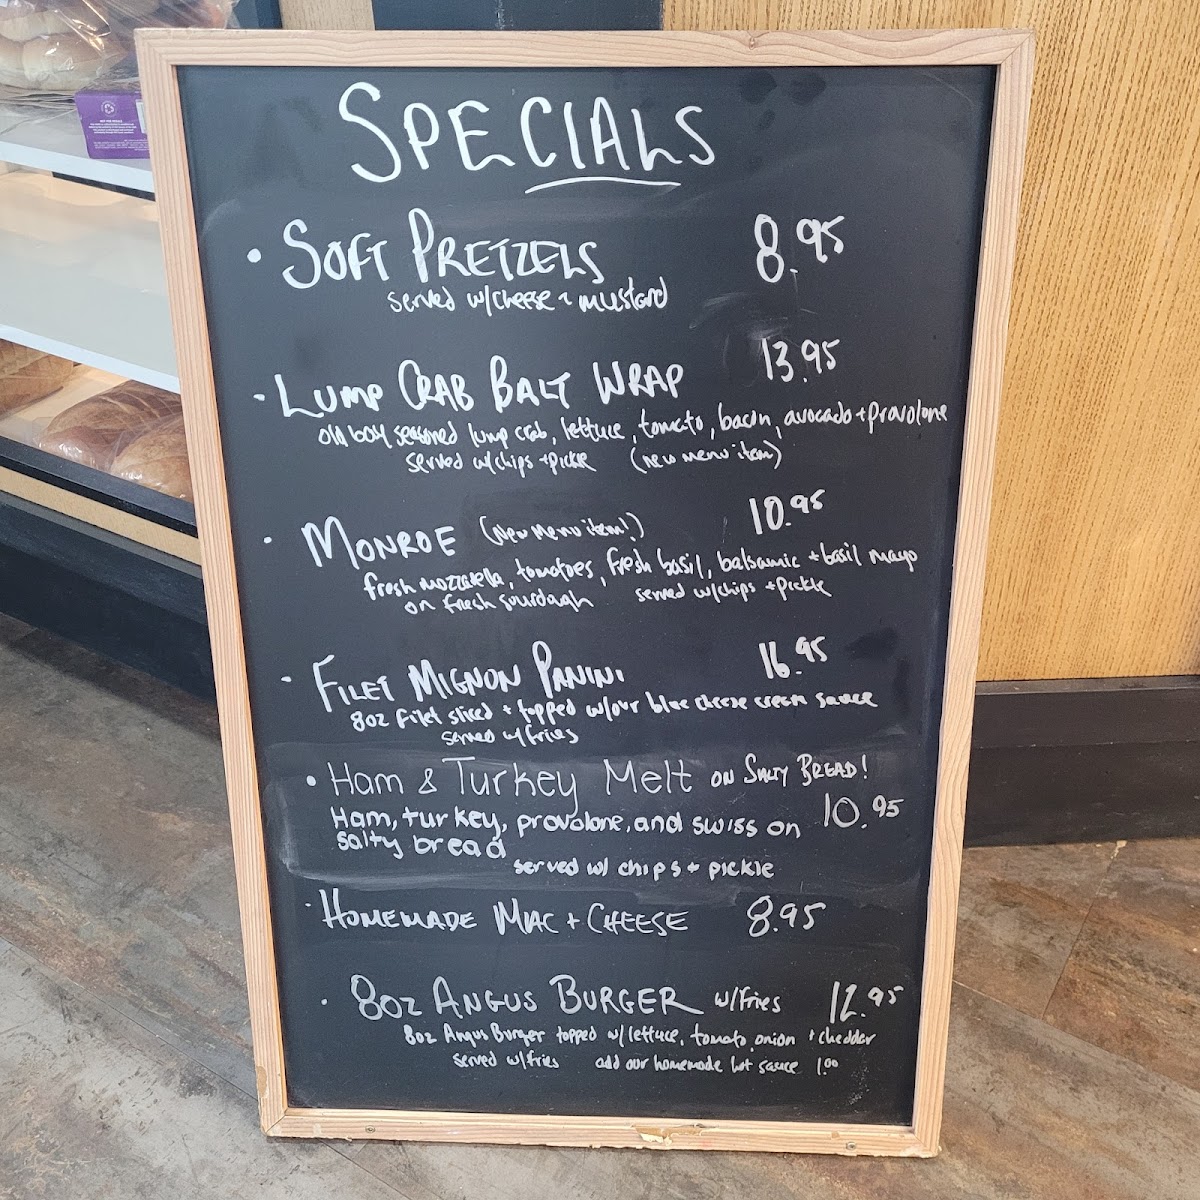 SPECIALS
• SOFT PRETZELS 8.95
served w/cheese + mustard
• LUMP CRAB BALT WRAP 13.95
old bay seasoned lump crab, lettuce, tomato, bacon, avocado + provolone
served w/chips + pickle (new menu item)
• MONROE (New Menu item!) 10.95
fresh mozzarella, tomatoes, fresh basil, balsamic + basil mayo
on fresh sourdough served w/chips + pickle
• FILET MIGNON PANINI 16.95
8oz Filet sliced + topped w/our blue cheese cream sauce
served w/fries
• Ham & Turkey Melt ON SALTY BREAD!
Ham, turkey, provolone, and swiss on 10.95
salty bread
served w/ chips + pickle
• HOMEMADE MAC + CHEESE 8.95
• 8oz ANGUS BURGER w/fries 12.95
8oz Angus Burger topped w/lettuce, tomato, onion + cheddar
served w/fries add our homemade hot sauce 1.00